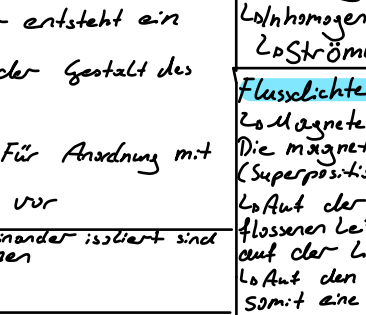 entsteht ein
der Gestalt des
Für Anordnung mit
vor
inander isoliert sind
en
↳Inhomogen
↳Strömu
Flussdichte
↳Magnete
Die magnet
(Superpositi
↳Auf der
flossenen Lei
auf der L
↳Auf den
somit eine